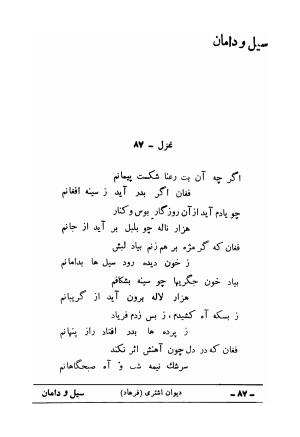 سیل و دامان
غزل - ۸۷
اگر چه آن بت رعنا شکست پیمانم
فغان اگر بدر آید ز سینه افغانم
چو یادم آید از آن روزگار بوس و کنار
هزار ناله چو بلبل بر آید از جانم
فغان که گر مژه بر هم زنم بیاد لبش
ز خون دیده رود سیل ها بدامانم
بیاد خون جگریها چو سینه بشکافم
هزار لاله برون آید از گریبانم
ز بسکه آه کشیدم، ز بس زدم فریاد
ز پرده ها بدر افتاد راز پنهانم
فغان که در دل چون آهنش اثر نکند
سرشک نیمه شب و آه صبحگاهانم
سیل و دامان
دیوان اشتری (فرهاد)
- ۸۷ -